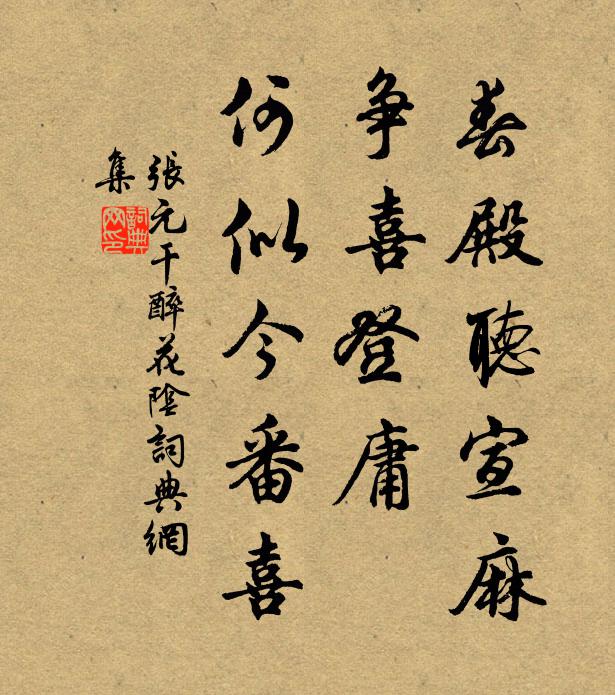 春殿聽宣麻
争喜登庸
何似今番喜
張元干醉花陰詞典網
集
詞典網印